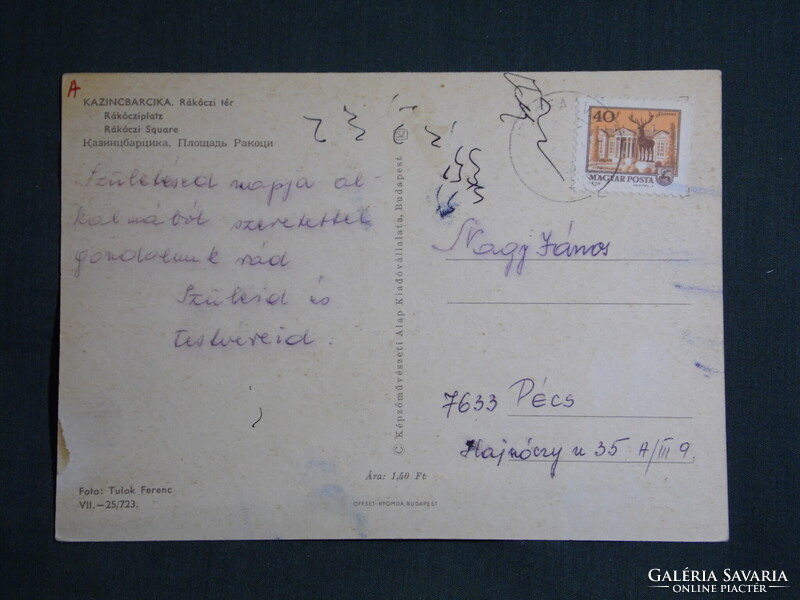 A
KAZINCBARCIKA. Rákóczi tér
Rákócziplatz
Rákóczi Square
Казинцбарцика. Площадь Ракоци
Születésed napja al-
kalmából szeretettel
gondolunk rád
Szüleid és
testvéreid.
Foto: Tulok Ferenc
VII.—25/723.
© Képzőművészeti Alap Kiadóvállalata, Budapest
Ára: 1,50 Ft
OFFSET-NYOMDA BUDAPEST
40
MAGYAR POSTA
Nagy János
7633 PÉCS
Hajnóczy u 35 A/III 9.
GALÉRIA SAVARIA
ONLINE PIACTÉR